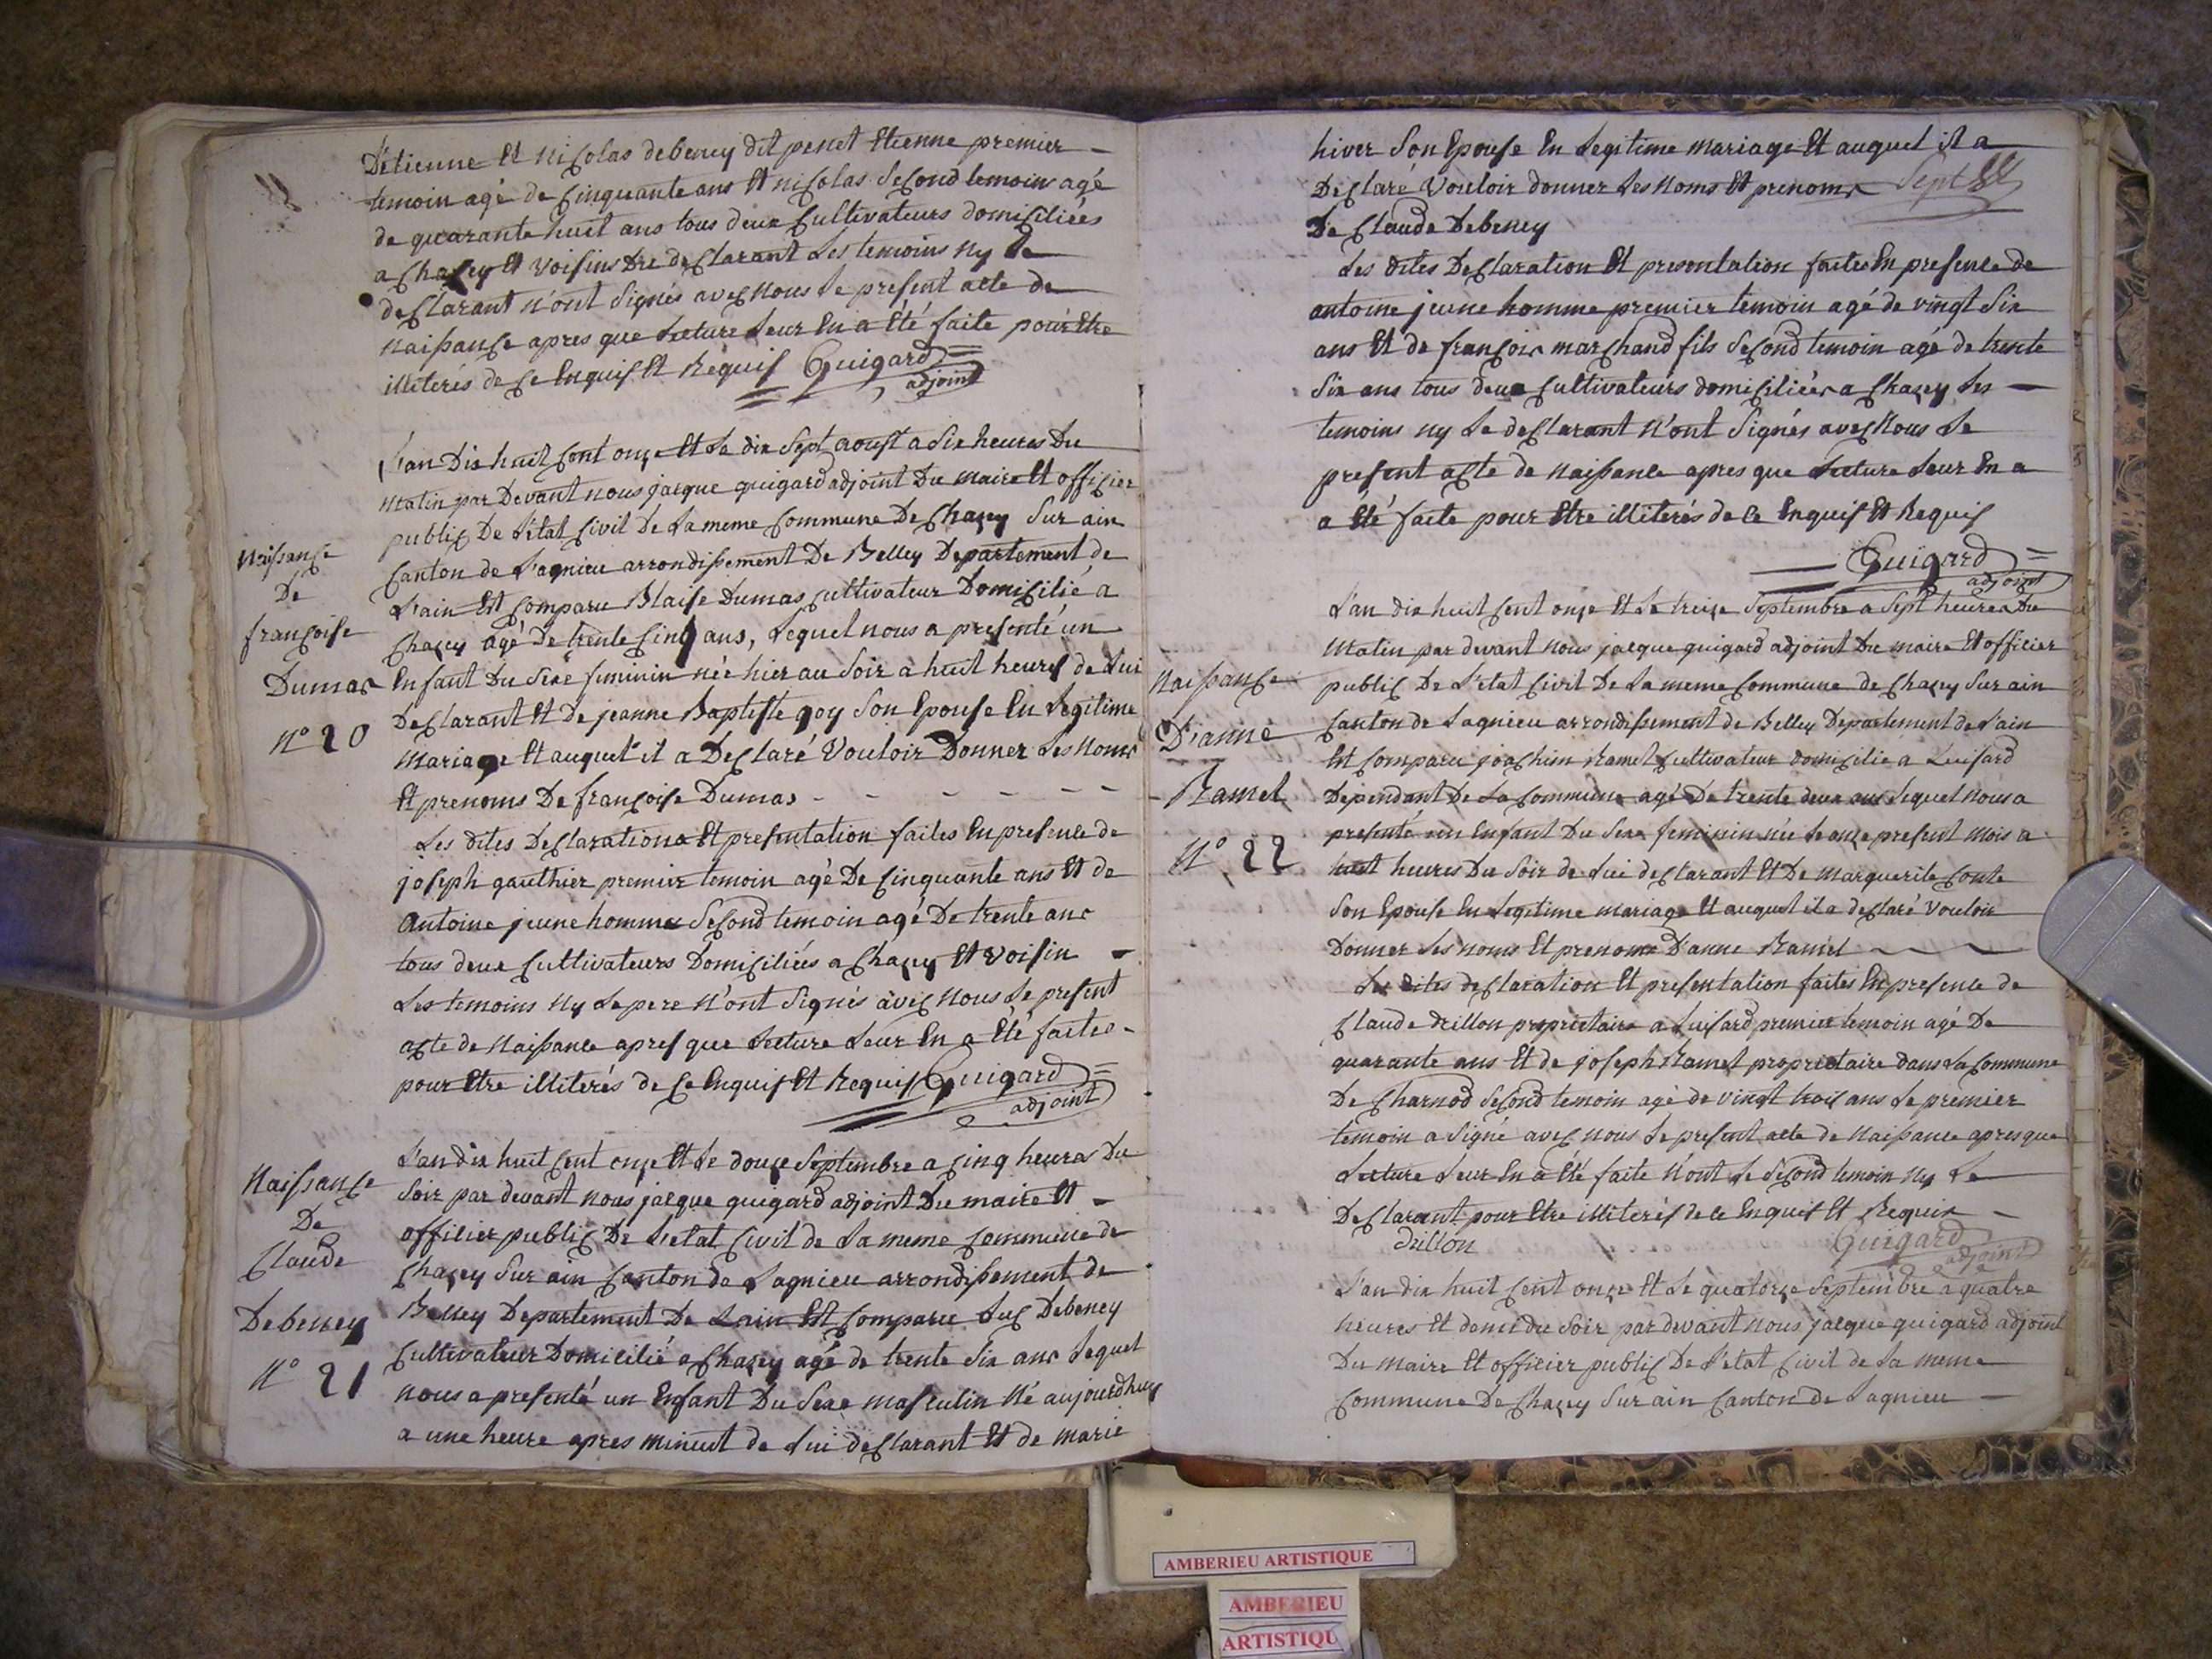 D'etienne Et niColas debeney dit penet Etienne premier -
temoin agé de Cinquante ans Et niColas SeCond temoin agé
de quarante huit ans tous deux Cultivateurs domiCiliés
a Chazey Et Voisins Dre deClarant Les temoins ny Le
deClarant n'ont Signés aveC nous Le present acte de
naissanCe apres que LeCture Leur En a Eté faite pour Etre
illiterés de Ce Enquis Et Requis Guigard
adjoint
L'an Dix huit Cent onze Et Le dix Sept aoust a Six heures Du
Matin par Devant nous jacque guigard adjoint Du maire Et offiCier
publiC De L'état Civil De La meme Commune De Chazey Sur ain
Canton de L'agnieu arrondissement De Belley Departement de
L'ain Est Comparu Blaise Dumas Cultivateur DomiCilié a
Chazey agé De trente Cinq ans, Lequel nous a presenté un
Enfant Du Sexe feminin née hier au Soir a huit heures de Lui
DeClarant Et de jeanne Baptiste goy Son Epouse En Legitime
Mariage Et auquel il a DeClaré Vouloir Donner Les Noms
Et prenoms De françoise Dumas - - - - - -
Les dites DeClarations Et presentation faites En presence de
joseph gauthier premier temoin agé De Cinquante ans Et de
Antoine jeune homme SeCond temoin agé De trente ans
tous deux Cultivateurs DomiCiliés a Chazey Et Voisin -
Les temoins ny Le pere N'ont Signés aveC Nous Le present
aCte de Naissance apres que LeCture Leur En a Eté faites -
pour Etre illiterés de Ce Enquis Et Requis Guigard
adjoint
Naissance
De
françoise
Dumas
N° 20
L'an dix huit Cent onze Et Le douze Septembre a Cinq heures Du
Soir par devant nous jacque guigard adjoint Du maire Et -
officier publiC De L'etat Civil de La meme Commune de
Chazey Sur ain Canton de Lagnieu arrondissement de
Belley Departement De Lain Est Comparu LuC Debeney
Cultivateur Domicilié a Chazey agé de trente Six ans Lequel
nous a presenté un Enfant Du Sexe masculin Né aujourdhuy
a une heure apres minuit de Lui deClarant Et de marie
NaissanCe
De
Claude
Debeney
N° 21
hiver Son Epouse En Legitime mariage Et auquel il a
DeClaré Vouloir donner Les Noms Et prenoms
De Claude Debeney
Les dites DeClaration Et presentation faites En presence de
antoine jeune homme premier temoin agé de vingt Six
ans Et de françois marChand fils SeCond temoin agé de trente
Six ans tous deux Cultivateurs domiCiliés a Chazey Les -
temoins ny Le deClarant N'ont Signés aveC Nous Le
present aCte de Naissance apres que LeCture Leur En a
a Eté faite pour Etre illiterés de Ce Enquis Et Requis
Guigard
adjoint
L'an dix huit Cent onze Et Le treize Septembre a Sept heures Du
Matin par devant Nous jacque guigard adjoint Du maire Et officier
publiC De L'etat Civil De La meme Commune de Chazey Sur ain
Canton de Lagnieu arrondissement de Belley Departement de L'ain
Est Comparu joaChim Ramel Cultivateur domicilié a Luisard
Dependant De La Commune agé De trente deux ans Lequel Nous a
presenté un Enfant Du Sexe feminin née Le onze present mois a
huit heures Du Soir de Lui deClarant Et De Marguerite Conte
Son Epouse En Legitime mariage Et auquel il a deClaré Vouloir
Donner Les noms Et prenoms D'anne Ramel
Les dites deClaration Et presentation faites En presence de
Claude drillon proprietaire a Luisard premier temoin agé De
quarante ans Et de joseph Ramel proprietaire dans La Commune
De Charnod SeCond temoin agé de vingt trois ans Le premier
temoin a Signé aveC nous Le present acte de Naissance apres que
LeCture Leur En a Eté faite N'ont Le SeCond temoin Ny Le
DeClarant pour Etre illiterés de Ce Enquis Et Requis -
drillon Guigard
adjoint
NaissanCe
D'anne
Ramel
N° 22
L'an dix huit Cent onze Et Le quatorze Septembre a quatre
heures Et demi du Soir par devant nous jacque guigard adjoint
Du maire Et officier publiC De L'etat Civil de La meme
Commune De Chazey Sur ain Canton de Lagnieu -
AMBERIEU ARTISTIQUE
AMBERIEU
ARTISTIQU